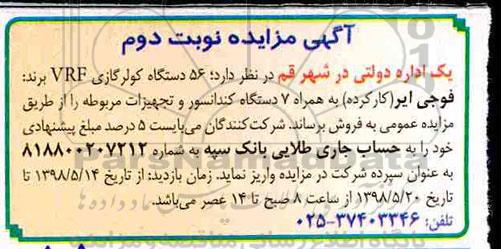 آگهی مزایده نوبت دوم
یک اداره دولتی در شهر قم در نظر دارد: ۵۶ دستگاه کولرگازی VRF برند:
فوجی ایر(کارکرده) به همراه ۷ دستگاه کندانسور و تجهیزات مربوطه را از طریق
مزایده عمومی به فروش برساند. شرکت‌کنندگان می‌بایست ۵ درصد مبلغ پیشنهادی
خود را به حساب جاری طلایی بانک سپه به شماره ۸۱۸۸۰۰۲۰۷۲۱۲
به عنوان سپرده شرکت در مزایده واریز نماید. زمان بازدید: از تاریخ ۱۳۹۸/۵/۱۴ تا
تاریخ ۱۳۹۸/۵/۲۰ از ساعت ۸ صبح تا ۱۴ عصر می‌باشد.
تلفن: ۳۷۴۰۳۳۴۶-۰۲۵